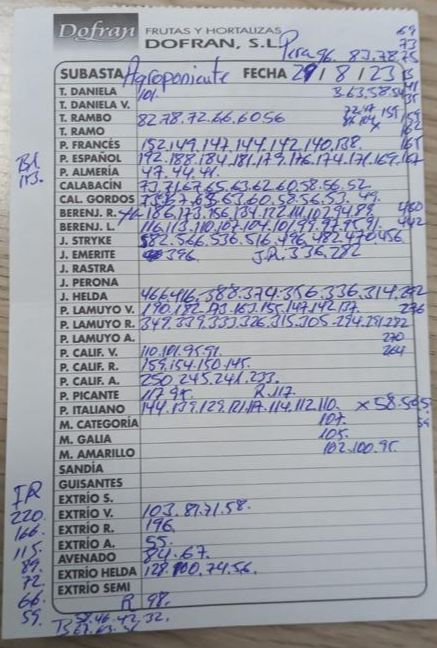 Dofran FRUTAS Y HORTALIZAS
DOFRAN, S.L.
Pera 96. 83.78.75
SUBASTA Agroponiente FECHA 29/8/23
T. DANIELA 101. B.63.58.54
T. DANIELA V.
T. RAMBO 82.78.72.66.60.56
T. RAMO
P. FRANCÉS 152.149.147.144.142.140.138.
P. ESPAÑOL 192.188.184.181.179.176.174.171.169.167
P. ALMERÍA 47.44.41.
Bl. 113.
CALABACÍN 73.71.67.65.63.62.60.58.56.52.
CAL. GORDOS 73.67.65.63.60.58.56.53.49.
BERENJ. R. 186.173.156.134.122.111.102.94.89. 480
BERENJ. L. 116.113.110.107.104.101.99.97.95.91. 442
J. STRYKE 582.566.536.516.496.482.470.456
J. EMERITE 396. J.R. 336.282
J. RASTRA
J. PERONA
J. HELDA 466.416.388.374.356.336.314.292
P. LAMUYO V. 190.182.173.163.155.147.142.137. 276
P. LAMUYO R. 349.339.333.326.315.305.294.291.282
P. LAMUYO A. 270
P. CALIF. V. 110.101.95.91. 264
P. CALIF. R. 159.154.150.145.
P. CALIF. A. 250.245.241.233.
P. PICANTE 117.95. R.117.
P. ITALIANO 144.139.129.121.117.114.112.110. x 58.565
M. CATEGORÍA 107.
M. GALIA 105.
M. AMARILLO 102.100.95.
SANDÍA
GUISANTES
EXTRÍO S.
EXTRÍO V. 103.81.71.58.
EXTRÍO R. 196.
EXTRÍO A. 55.
AVENADO 84.67.
EXTRÍO HELDA 128.100.74.56.
EXTRÍO SEMI
R 98.
IR
220.
166.
115.
89.
72.
66.
59.
58.46.42.32.